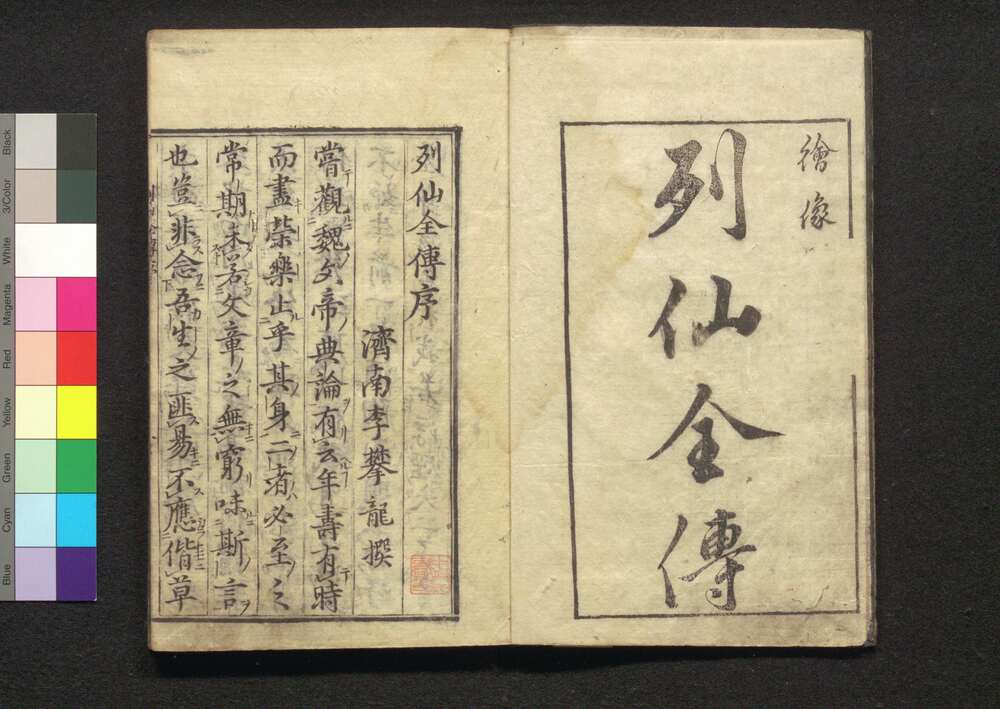 繪像
列仙全傳
列仙全傳序
濟南李攀龍撰
嘗觀魏文帝典論有云年壽有時
而盡榮樂止乎其身二者必至之
常期未若文章之無窮味斯言
也豈非念吾生之匪易不應偕草
Black
3/Color
White
Magenta
Red
Yellow
Green
Cyan
Blue